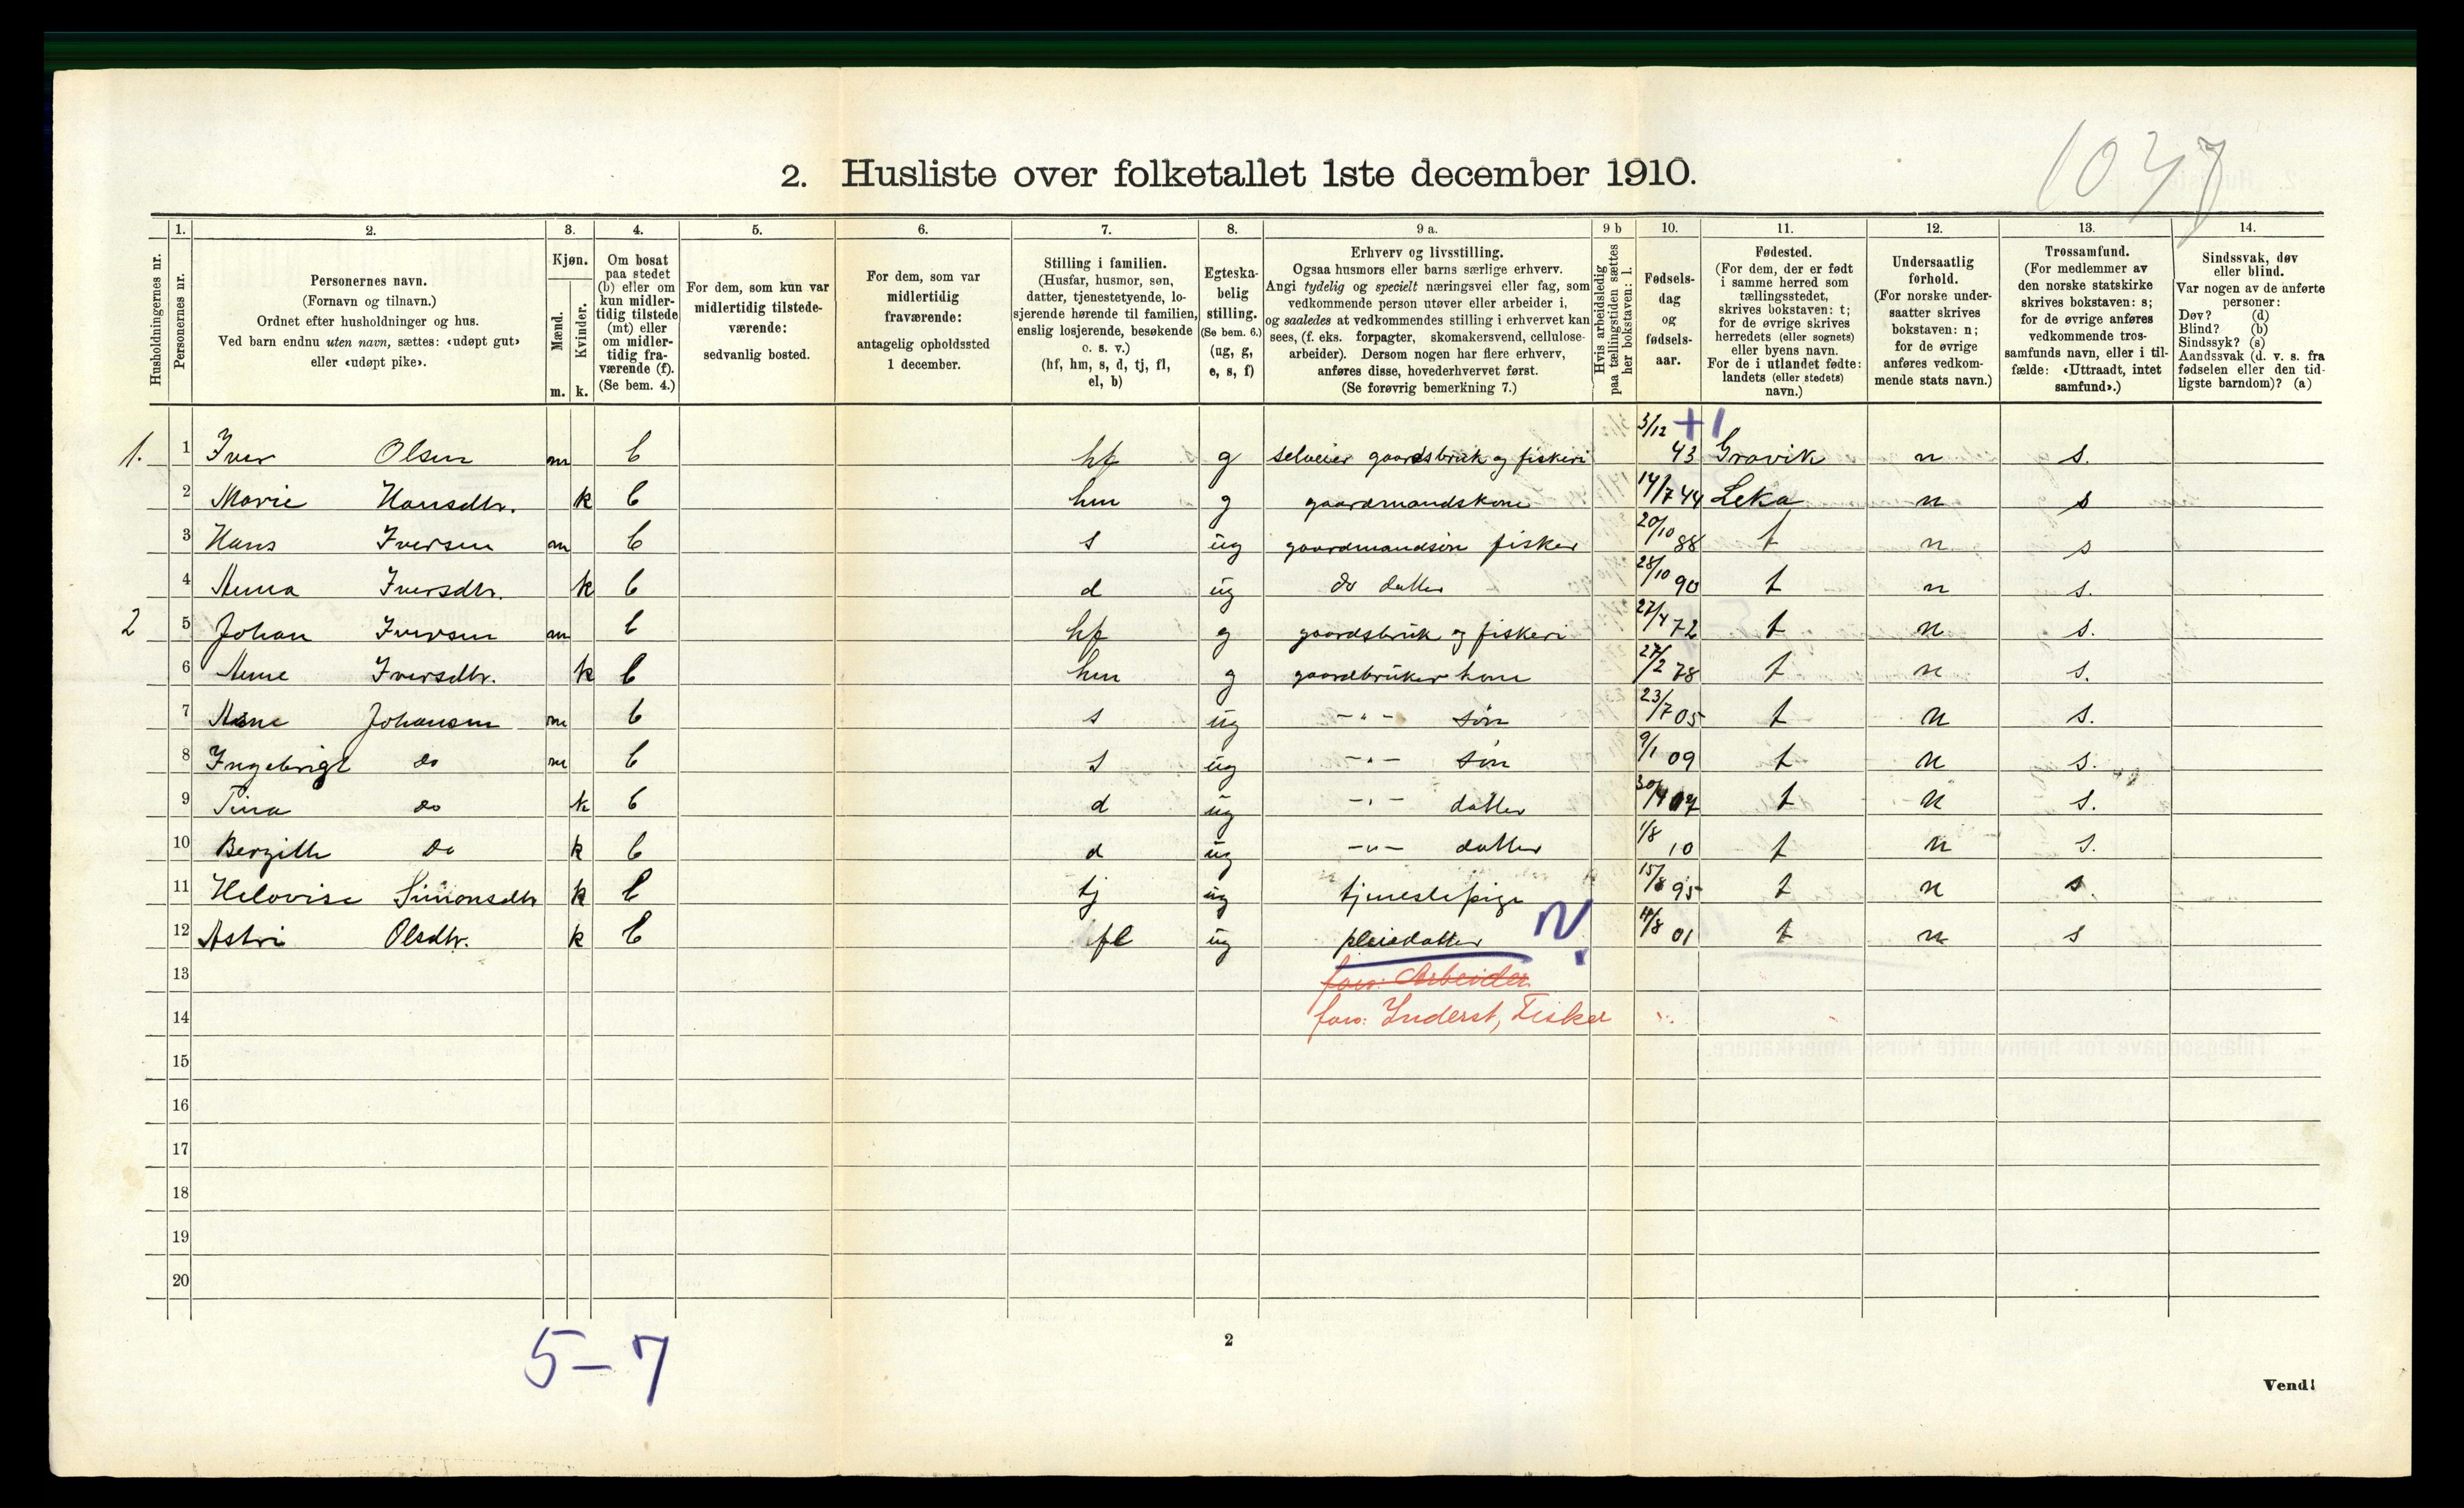 1047
2. Husliste over folketallet 1ste december 1910.
Husholdningernes nr.
1.
Personernes nr.
2.
Personernes navn.
(Fornavn og tilnavn.)
Ordnet efter husholdninger og hus.
Ved barn endnu uten navn, sættes: «udøpt gut»
eller «udøpt pike».
3.
Kjøn.
Mænd.
Kvinder.
m. k.
4.
Om bosat
paa stedet
(b) eller om
kun midler-
tidig tilstede
(mt) eller
om midler-
tidig fra-
værende (f).
(Se bem. 4.)
5.
For dem, som kun var
midlertidig tilstede-
værende:
sedvanlig bosted.
6.
For dem, som var
midlertidig
fraværende:
antagelig opholdssted
1 december.
7.
Stilling i familien.
(Husfar, husmor, søn,
datter, tjenestetyende, lo-
sjerende hørende til familien,
enslig losjerende, besøkende
o. s. v.)
(hf, hm, s, d, tj, fl,
el, b)
8.
Egteska-
belig
stilling.
(Se bem. 6.)
(ug, g,
e, s, f)
9 a.
Erhverv og livsstilling.
Ogsaa husmors eller barns særlige erhverv.
Angi tydelig og specielt næringsvei eller fag, som
vedkommende person utøver eller arbeider i,
og saaledes at vedkommendes stilling i erhvervet kan
sees, (f. eks. forpagter, skomakersvend, cellulose-
arbeider). Dersom nogen har flere erhverv,
anføres disse, hovederhvervet først.
(Se forøvrig bemerkning 7.)
9 b
Hvis arbeidsledig
paa tællingstiden sættes
her bokstaven: l.
10.
Fødsels-
dag
og
fødsels-
aar.
11.
Fødested.
(For dem, der er født
i samme herred som
tællingsstedet,
skrives bokstaven: t;
for de øvrige skrives
herredets (eller sognets)
eller byens navn.
For de i utlandet fødte:
landets (eller stedets)
navn.)
12.
Undersaatlig
forhold.
(For norske under-
saatter skrives
bokstaven: n;
for de øvrige
anføres vedkom-
mende stats navn.)
13.
Trossamfund.
(For medlemmer av
den norske statskirke
skrives bokstaven: s;
for de øvrige anføres
vedkommende tros-
samfunds navn, eller i til-
fælde: «Uttraadt, intet
samfund».)
14.
Sindssvak, døv
eller blind.
Var nogen av de anførte
personer:
Døv? (d)
Blind? (b)
Sindssyk? (s)
Aandssvak (d. v. s. fra
fødselen eller den tid-
ligste barndom)? (a)
1. 1 Iver Olsen m b hf g selveier gaardsbruk og fiskeri 3/12 43 +1 Gravik n s.
2 Marie Hansdtr. k b hm g gaardmandskone 14/7 44 Leka n s
3 Hans Iversen m b s ug gaardmandsøn fisker 20/10 88 t n s
4 Anna Iversdtr. k b d ug do datter 28/10 90 t n s.
2 5 Johan Iversen m b hf g gaardsbruk og fiskeri 27/4 72 t n s.
6 Anne Iversdtr. k b hm g gaardbruker kone 27/2 78 t n s.
7 Johansen m b s ug -"- søn 23/7 05 t n s.
8 Ingebrigt do m b s ug -"- søn 9/1 09 t n s.
9 Tina do k b d ug -"- datter 30/4 07 t n s.
10 Bergitte do k b d ug -"- datter 1/8 10 t n s.
11 Helovise Simonsdtr k b tj ug tjenestepige 15/8 95 t n s.
12 Astri Olsdtr. k b fl ug pleiedatter 4/8 01 t n s
13 fors: Arbeider
14 fors: Inderst, Fisker
15
16
17
18
19
20
5-7
2
Vend!